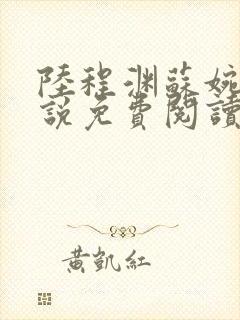 陸程渊蘇婉
說免費閱讀
黃凱紅